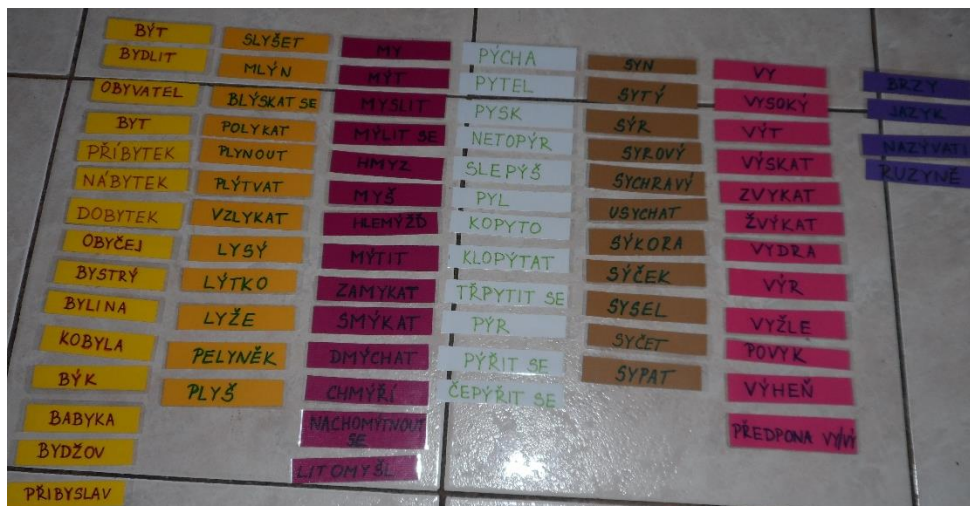 BÝT
BYDLIT
OBYVATEL
BYT
PŘÍBYTEK
NÁBYTEK
DOBYTEK
OBYČEJ
BYSTRÝ
BYLINA
KOBYLA
BÝK
BABYKA
BYDŽOV
PŘIBYSLAV
SLYŠET
MLÝN
BLÝSKAT SE
POLYKAT
PLYNOUT
PLÝTVAT
VZLYKAT
LYSÝ
LÝTKO
LYŽE
PELYNĚK
PLYŠ
MY
MÝT
MYSLIT
MÝLIT SE
HMYZ
MYŠ
HLEMÝŽĎ
MÝTIT
ZAMYKAT
SMÝKAT
DMÝCHAT
CHMÝŘÍ
NACHOMÝTNOUT
SE
LITOMYŠL
PÝCHA
PYTEL
PYSK
NETOPÝR
SLEPÝŠ
PYL
KOPYTO
KLOPÝTAT
TŘPYTIT SE
PÝR
PÝŘIT SE
ČEPÝŘIT SE
SYN
SYTÝ
SÝR
SYROVÝ
SYCHRAVÝ
USYCHAT
SÝKORA
SÝČEK
SYSEL
SYČET
SYPAT
VY
VYSOKÝ
VÝT
VÝSKAT
ZVYKAT
ŽVÝKAT
VYDRA
VÝR
VYŽLE
POVYK
VÝHEŇ
PŘEDPONA VY/VÝ
BRZY
JAZYK
NAZÝVATI
RUZYNĚ